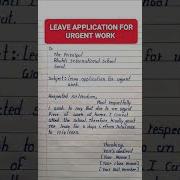 LEAVE APPLICATION FOR
URGENT WORK
To
The Principal
International School
Subject: Leave application for urgent
work.
Respected
Most respectfully
I wish to say that due to an urgent
piece of work at home, I cannot
attend the school. Therefore, kindly grant
me leave for 2 days
Thanking
Your's obedient
(Your Name)
(Your Class)
(Your Roll Number)